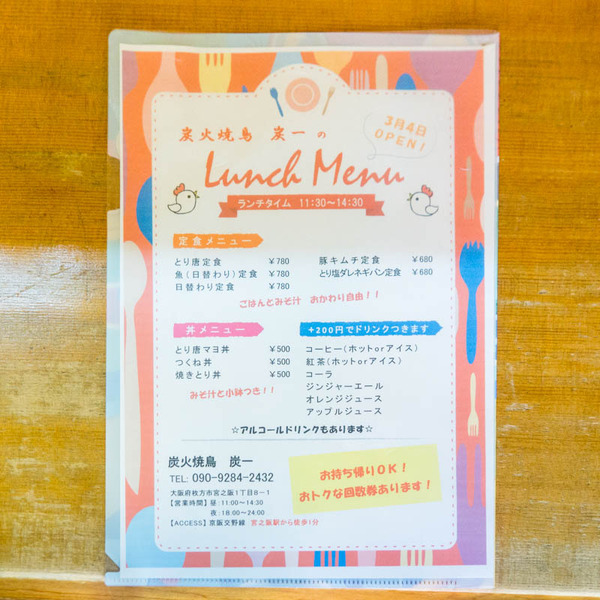 炭火焼鳥 炭一の
3月4日
OPEN!
Lunch Menu
ランチタイム 11:30～14:30
定食メニュー
とり唐定食 ￥780
魚(日替わり)定食 ￥780
日替わり定食 ￥780
豚キムチ定食 ￥680
とり塩ダレネギパン定食 ￥680
ごはんとみそ汁 おかわり自由！！
丼メニュー
とり唐マヨ丼 ￥500
つくね丼 ￥500
焼きとり丼 ￥500
みそ汁と小鉢つき！！
+200円でドリンクつきます
コーヒー(ホットorアイス)
紅茶(ホットorアイス)
コーラ
ジンジャーエール
オレンジジュース
アップルジュース
☆アルコールドリンクもあります☆
炭火焼鳥 炭一
TEL: 090-9284-2432
大阪府枚方市宮之阪1丁目8－1
【営業時間】昼:11:00～14:30
夜:18:00～24:00
【ACCESS】京阪交野線 宮之阪駅から徒歩1分
お持ち帰りOK！
おトクな回数券あります！